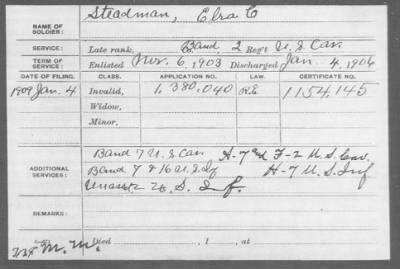 NAME OF SOLDIER: Steadman, Elra C
SERVICE: Late rank, Band, 2 Regt U.S. Cav.
TERM OF SERVICE: Enlisted Nov. 6, 1903 Discharged Jan. 4, 1906
DATE OF FILING. CLASS. APPLICATION NO. LAW. CERTIFICATE NO.
1909 Jan. 4 Invalid, 1,380,040 R.E. 1154,145
Widow,
Minor,
Band 7 U.S. Cav. H-7 and F-2 U.S. Cav.
ADDITIONAL SERVICES: Band 7 & 16 U.S. Inf H-7 U.S. Inf
Unassi 26 U.S. Inf.
REMARKS:
M.M. Died , 1 , at